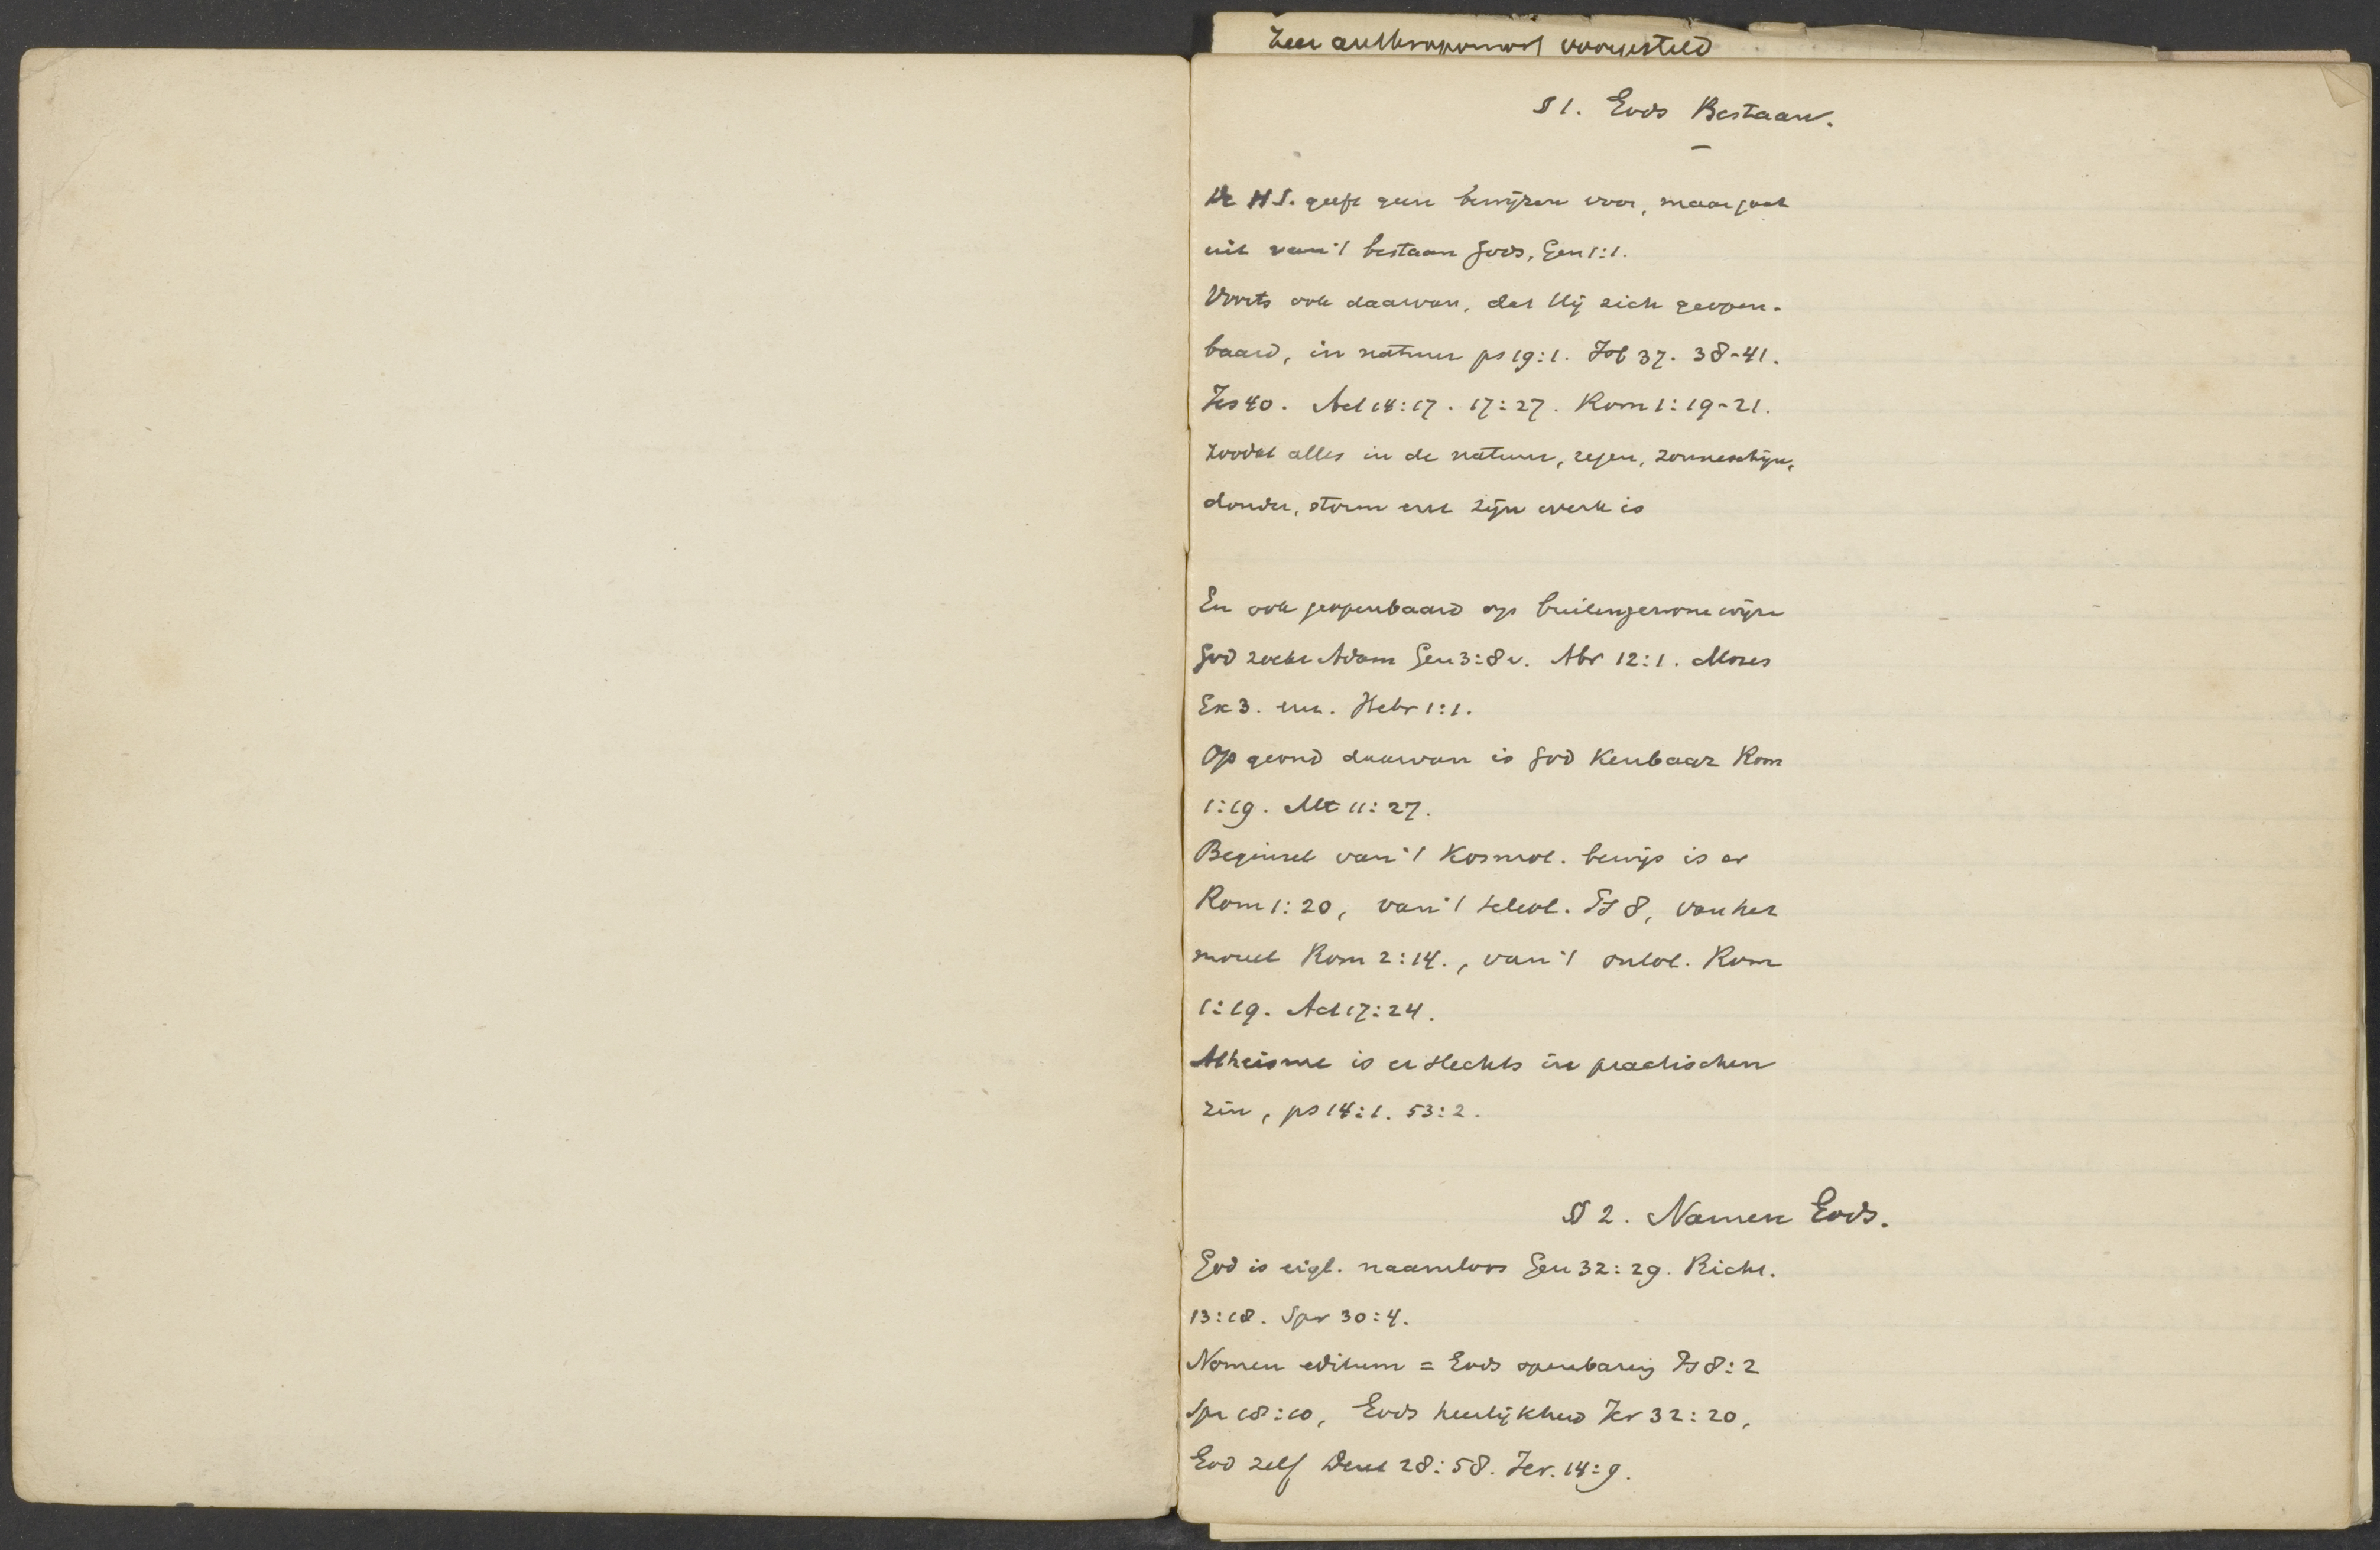 Zeer anthropomorf voorgesteld
§ 1. Gods Bestaan.
De H S. geeft geen bewijzen voor, maar gaat
uit van 't bestaan Gods, Gen 1:1.
Voorts ook daarvan, dat Hij zich geopen-
baard, in natuur ps 19:1. Job 37. 38-41.
Jes 40. Act 14:17. 17:27. Rom 1:19-21.
Zoodat alles in de natuur, regen, zonneschijn,
donder, storm enz zijn werk is
En ook geopenbaard op buitengewone wijze
God zocht Adam Gen 3:8v. Abr 12:1. Mozes
Ex 3. enz. Hebr 1:1.
Op grond daarvan is God Kenbaar Rom
1:19. Mt 11:27.
Beginsel van 't Kosmol. bewijs is er
Rom 1:20, van 't teleol. Ps 8, van het
moreel Rom 2:14., van 't ontol. Rom
1:19. Act 17:24.
Atheisme is er slechts in practischen
zin, ps 14:1. 53:2.
§ 2. Namen Gods.
God is eigl. naamloos Gen 32:29. Richt.
13:18. Spr 30:4.
Nomen editum = Gods openbaring Ps 8:2
Spr 18:10, Gods heerlijkheid Jer 32:20,
God zelf Deut 28:58. Jer. 14:9.